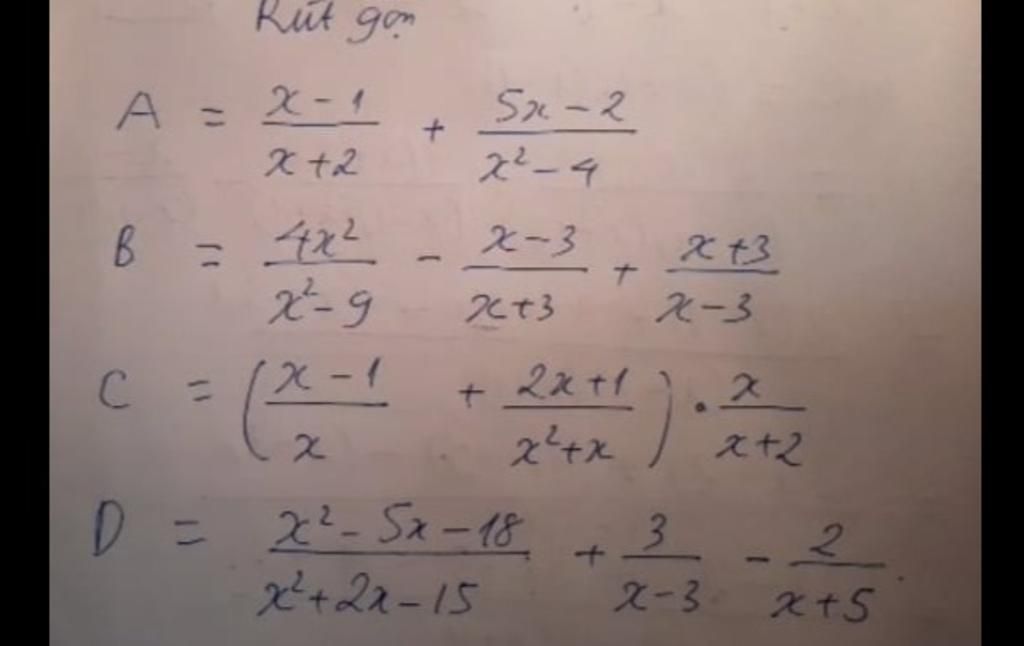 Rút gọn
A = \frac{x-1}{x+2} + \frac{5x-2}{x^2-4}
B = \frac{4x^2}{x^2-9} - \frac{x-3}{x+3} + \frac{x+3}{x-3}
C = \left(\frac{x-1}{x} + \frac{2x+1}{x^2+x}\right) \cdot \frac{x}{x+2}
D = \frac{x^2-5x-18}{x^2+2x-15} + \frac{3}{x-3} - \frac{2}{x+5}.